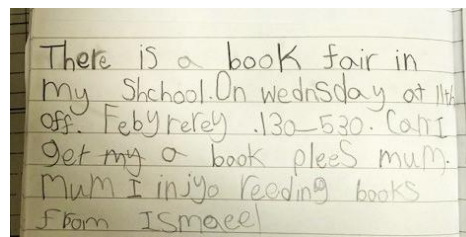 There is a book fair in
my Shchool. On wednsday at 11th
off. Febyrerey .130_530. Can I
get my a book plees mum.
mum I injyo reeding books
from Ismaeel